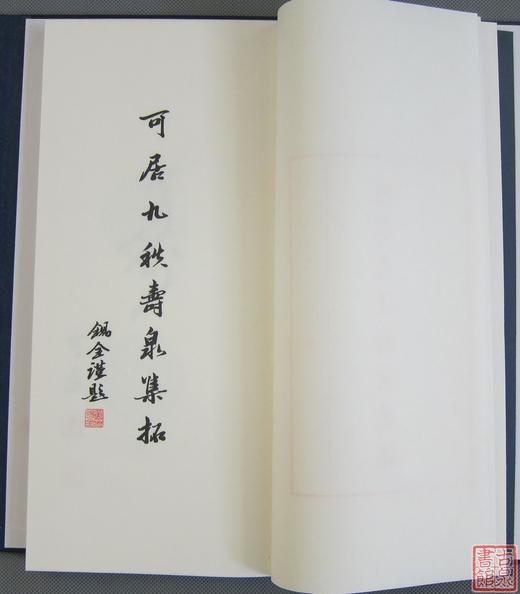 可居九秩壽泉集拓
錫全謹題
古泉書館